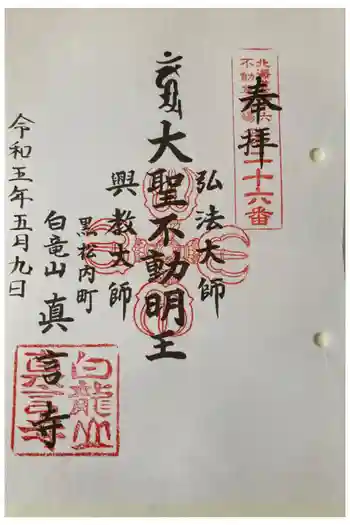 奉拝
二十六番
弘法大師
大聖不動明王
興教大師
黒松内町
白竜山
真言寺
令和五年五月九日
白龍山
真言寺